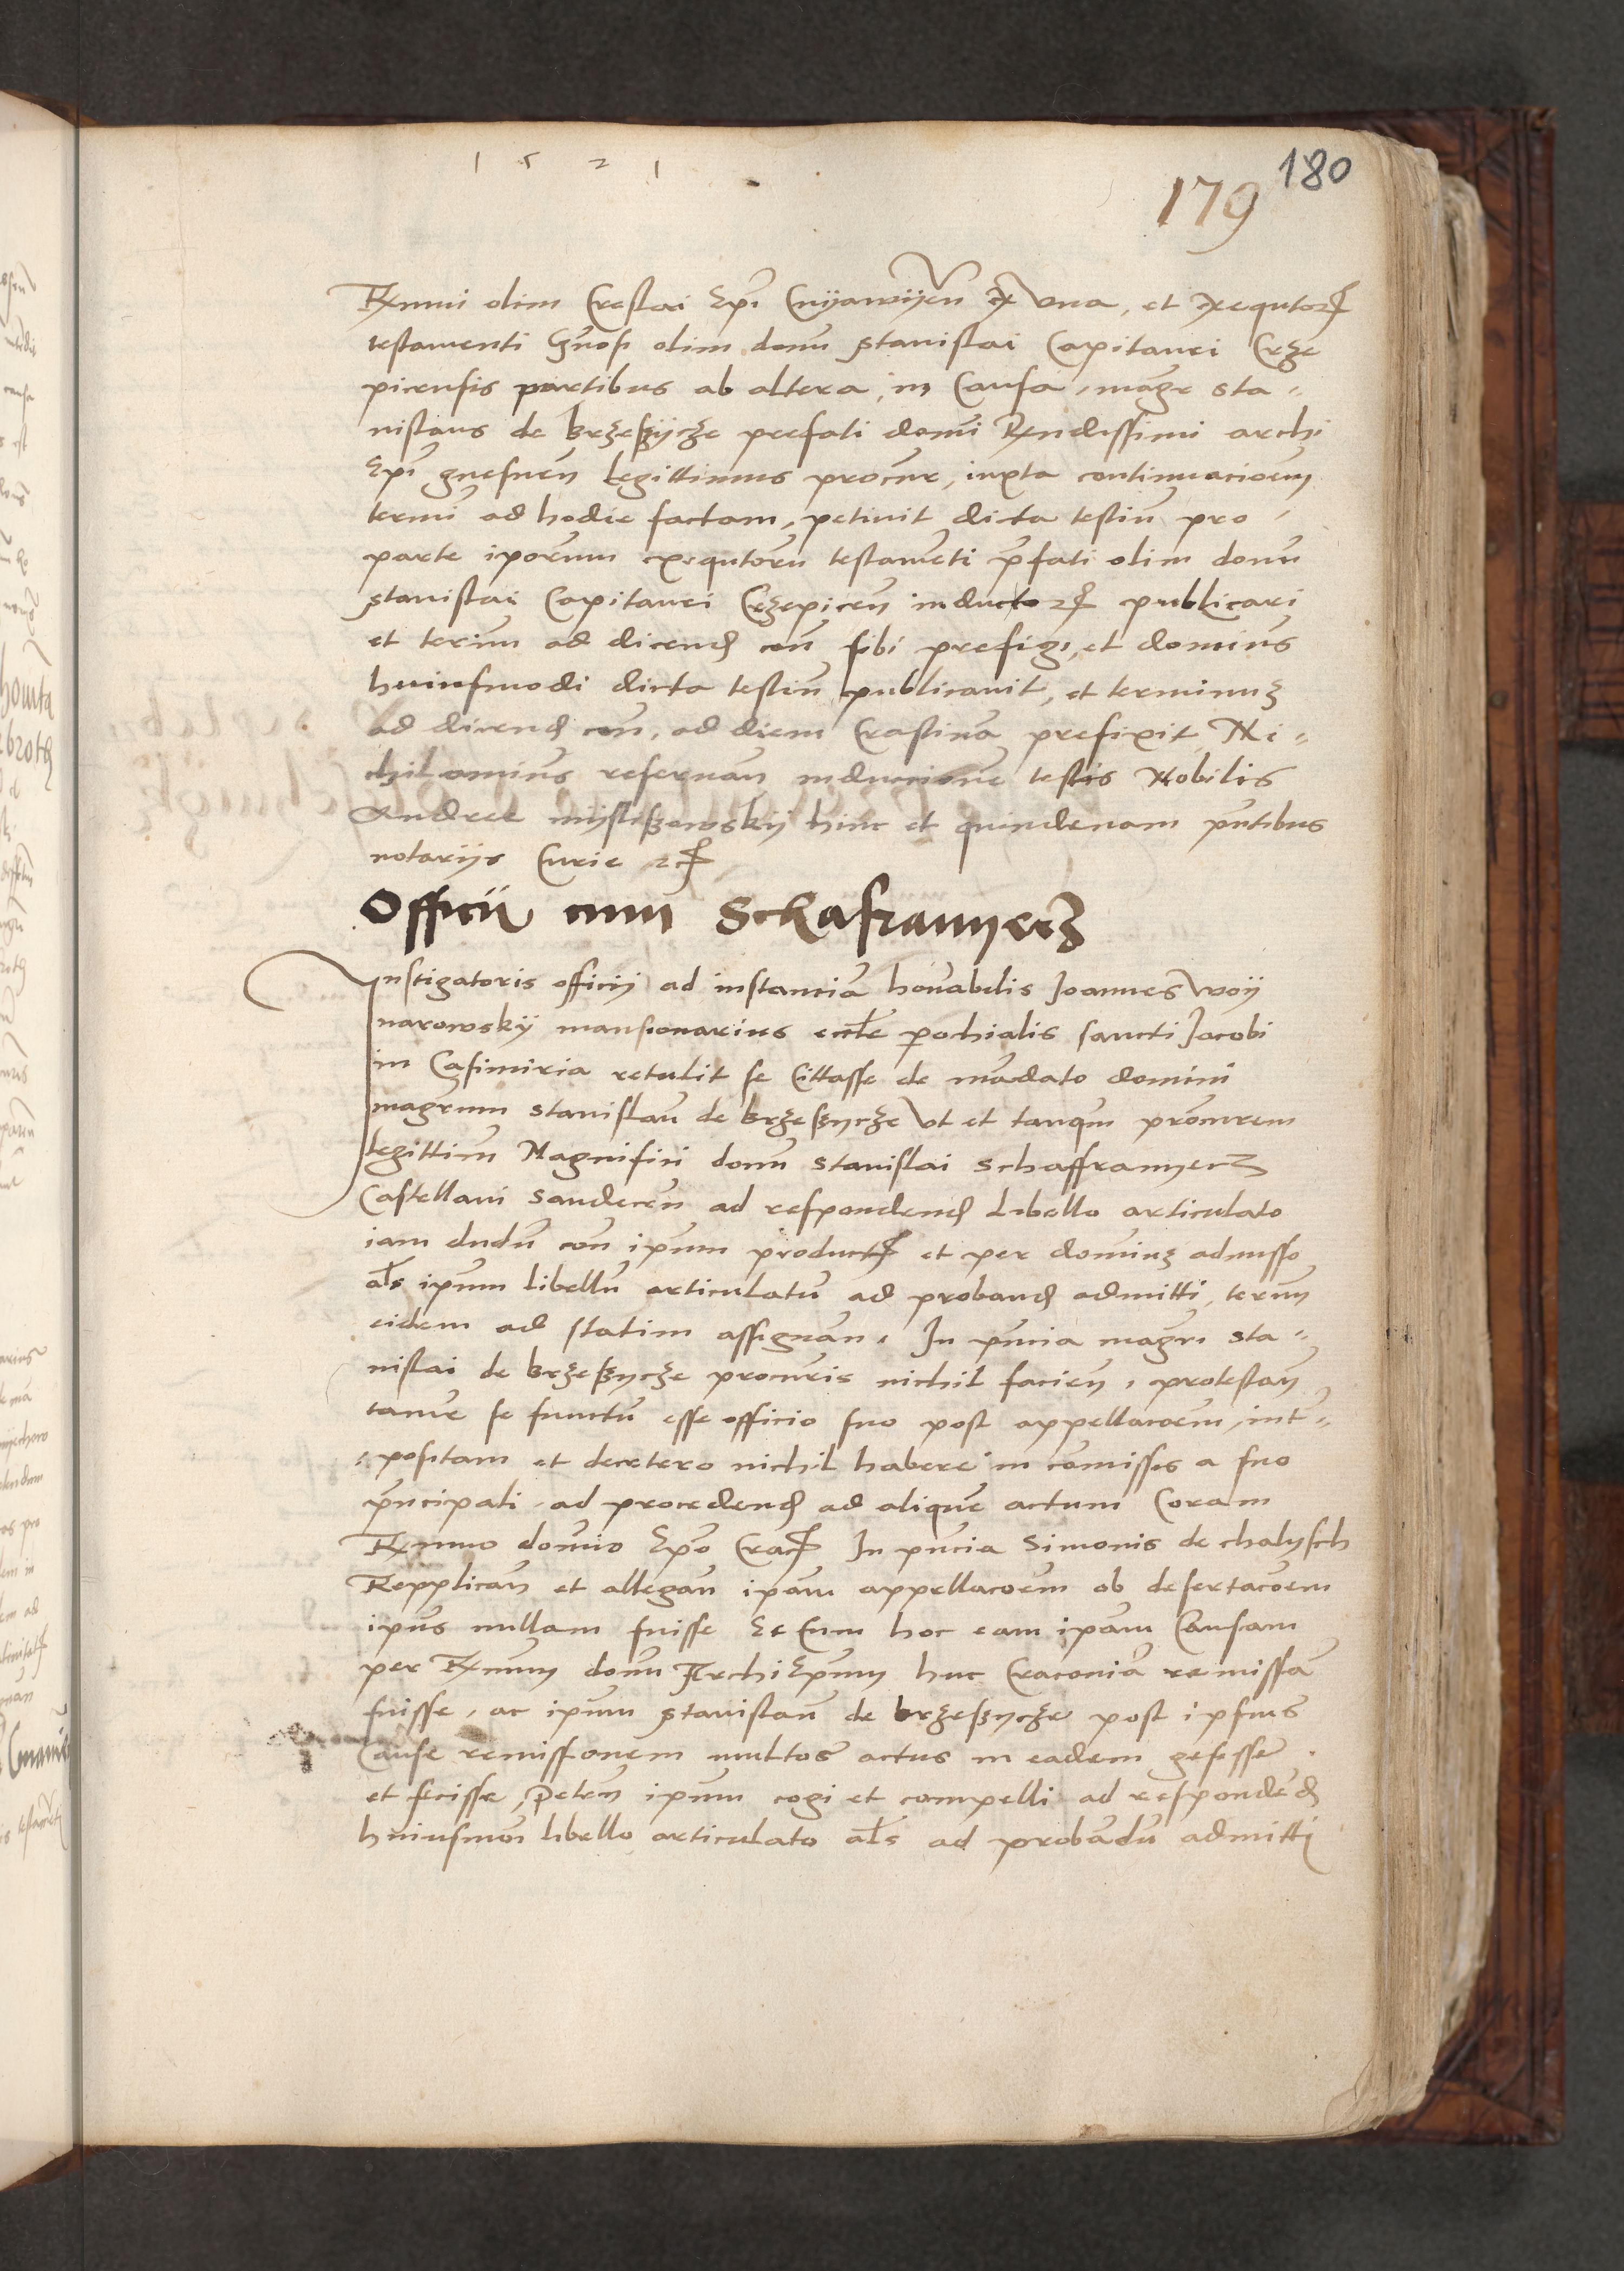 1521
180
179
Rxmi olim Creslai Epi Cuyawyen ex una, et exequtor
testamenti Gnosi olim domi Stanislai Capitanei Crze
picensis partibus ab altera, in causa, magr Sta-
nislaus de brzeszycze prefati domi Rxndissimi archi
Epi gnesnen legittimus procur, iuxta continuacioem
termi ad hodie factam, petiuit dicta testiu pro
parte iporum exequtoru testameti pfati olim domi
Stanislai Capitanei Crzepicen inductor publicari
et termu ad dicend con sibi prefigi, et dominus
huiusmodi dicta testiu publicauit, et terminu
ad dicend con, ad diem Crastina prefixit, Ni-
chilominus reseruan inductione testis Nobilis
Andree mysliszowsky hinc et quindenam pntibus
notarijs Curie etc
Officii cum Sckafranyecz
Instigatoris officij ad instancia honorabilis Joannes Woy
narowsky mansionarius eccle parochialis sancti Jacobi
in Casimiria retulit se Cittasse de madato domini
magrum Stanislau de brzeszycze ut et tanqm procurem
legittimu Magnifici domi Stanislai Schaffranyecz
Castellani Sandecen ad respondend Libello articulato
iam dudu con ipum product et per dominu admisso
als ipum libellu articulatu ad proband admitti, termu
eidem ad statim assignan. In pncia magri Sta-
nislai de brzeszycze procuris nichil facien, protestan
tame se functu esse officio suo post appellacoem, int-
positam et decetero nichil habere in comissis a suo
principali, ad procedend ad alique actum Coram
Rxmo domio Epo Crac In pncia Simonis de chalysch
Repplican et allegan ipam appellacoem ob desertacoem
ipius nullam fuisse Et Cum hoc eam ipam Causam
per Rxmum domu ArchiEpum huc Cracouia remissa
fuisse, ac ipum Stanislau de brzeszycze post ipsius
Cause remissionem multos actus in eadem gesesse
et fecisse, Peten ipum cogi et compelli ad respondend
huiusmoi libello articulato als ad probandu admitti